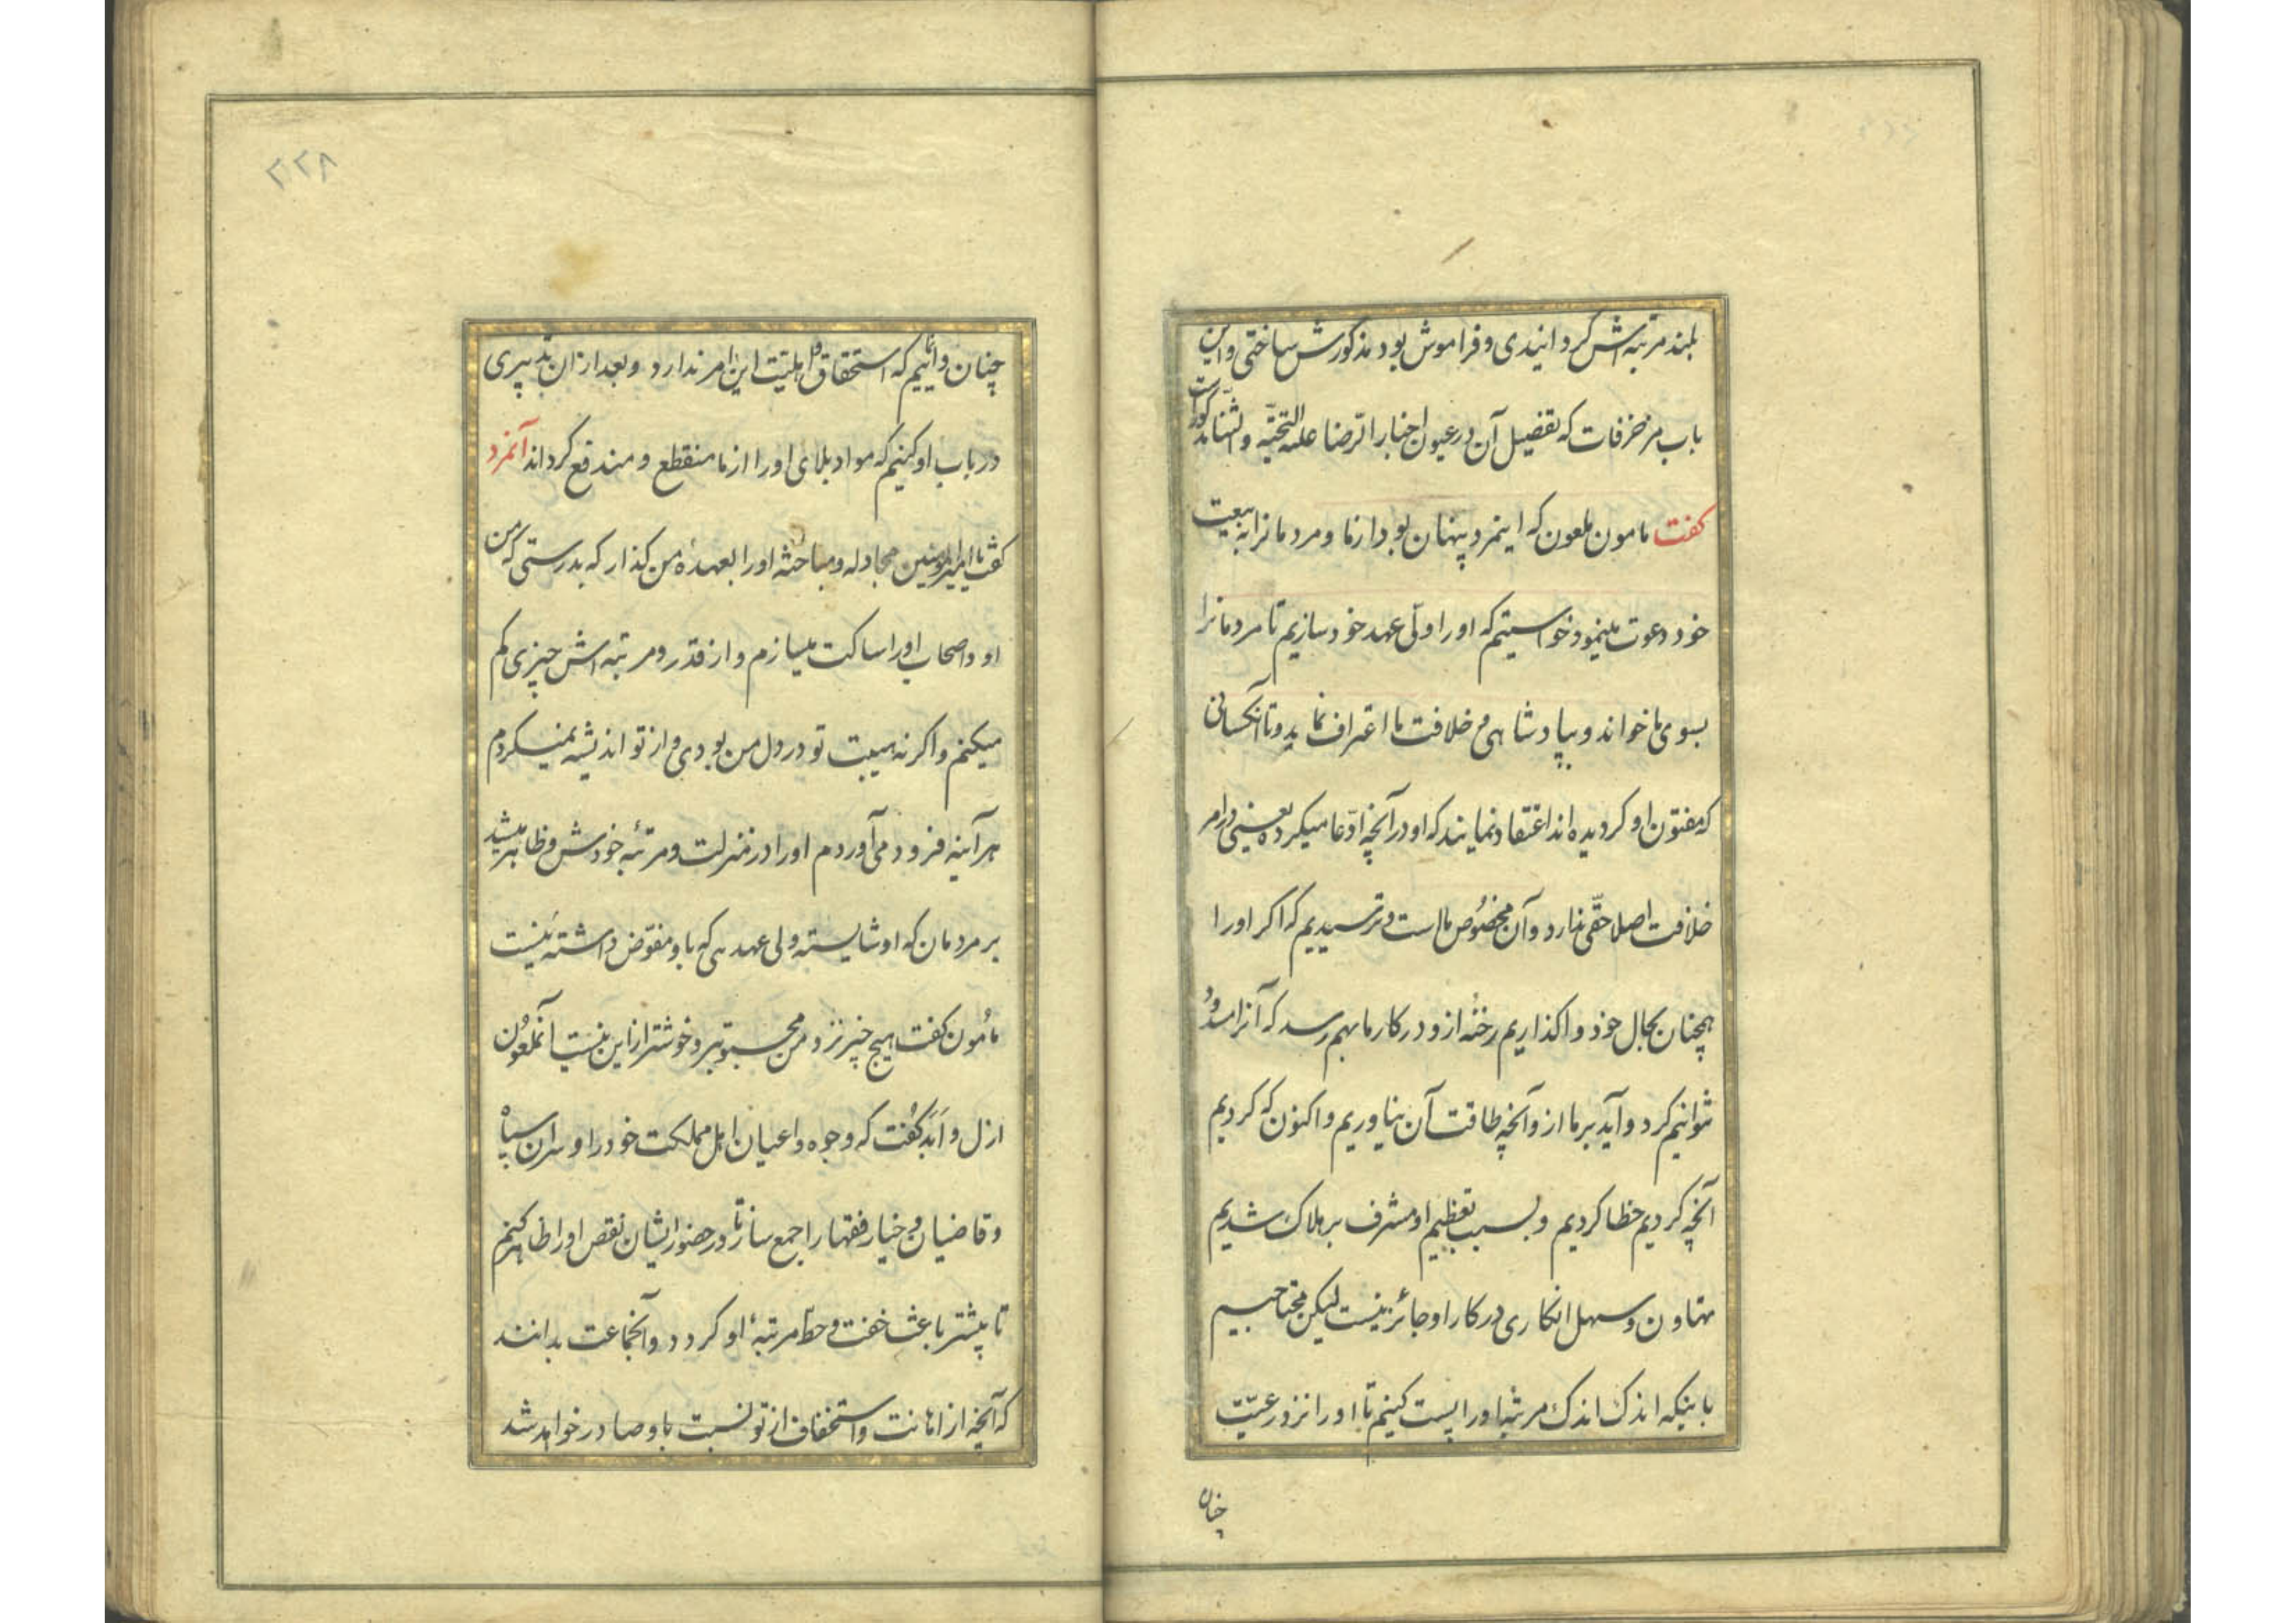 بلند مرتبه‌اش گردانیدی و فراموش بود مذکورش ساختی و ازین
باب مزخرفات که تفضیل آن در عیون اخبار الرضا علیه التحیّه والثنا مذکور است
کفت مامون ملعون که اینمرد پنهان بود از ما و مردمانرا به بیعت
خود دعوت مینمود خواستیم که او را ولّی عهد خود سازیم تا مردمانرا
بسوی ما خواند و بپادشاهی و خلافت ما اعتراف نماید و تا آنکسانی
که مفتون او کردیده اند اعتقاد نمایند که او در آنچه ادّعا میکرده یعنی در امر
خلافت اصلا حقّی ندارد و آن مخصوص ماست و ترسیدیم که اکر او را
همچنان بحال خود واکذاریم رخنهٔ ازو در کار ما بهم رسد که آنرا سدّ
نتوانیم کرد و آید بر ما ازو آنچه طاقت آن نیاوریم و اکنون که کردیم
آنچه کردیم خطا کردیم و بسبب تعظیم او مشرف بر هلاک شدیم
تهاون و سهل انکاری در کار او جائز نیست لیکن محتاجیم
باینکه اندک اندک مرتبه او را پست کنیم تا او را نزد رعیّت
چنان
۲۲۸
چنان وانمائیم که استحقاق و اهلیّت این امر ندارد و بعد از آن تدبیری
در باب او کنیم که مواد بلای او را از ما منقطع و مندفع کرداند آنمرد
کفت یا امیرالمؤمنین مجادله و مباحثه او را بعهدهٔ من کذار که بدرستی که من
او و اصحاب او را ساکت میسازم و از قدر و مرتبه‌اش چیزی کم
میکنم و اکر نه هیبت تو در دل من بودی و از تو اندیشه نمیکردم
هر آینه فرود می‌آوردم او را در منزلت و مرتبهٔ خودش و ظاهر میشد
بر مردمان که او شایسته ولی عهدی که باو مفوّض داشتهٔ نیست
مأمون کفت هیچ چیز نزد من محبوبتر و خوشتر از این نیست آنملعون
ازل و ابد کفت که وجوه و اعیان اهل مملکت خود را و سران سپاه
و قاضیان و خیار فقها را جمع ساز تا در حضور ایشان نقص او را ظاهر کنم
تا بیشتر باعث خفت و حطّ مرتبهٔ او کردد و آنجماعت بدانند
که آنچه از اهانت و استخفاف از تو نسبت باو صادر خواهد شد